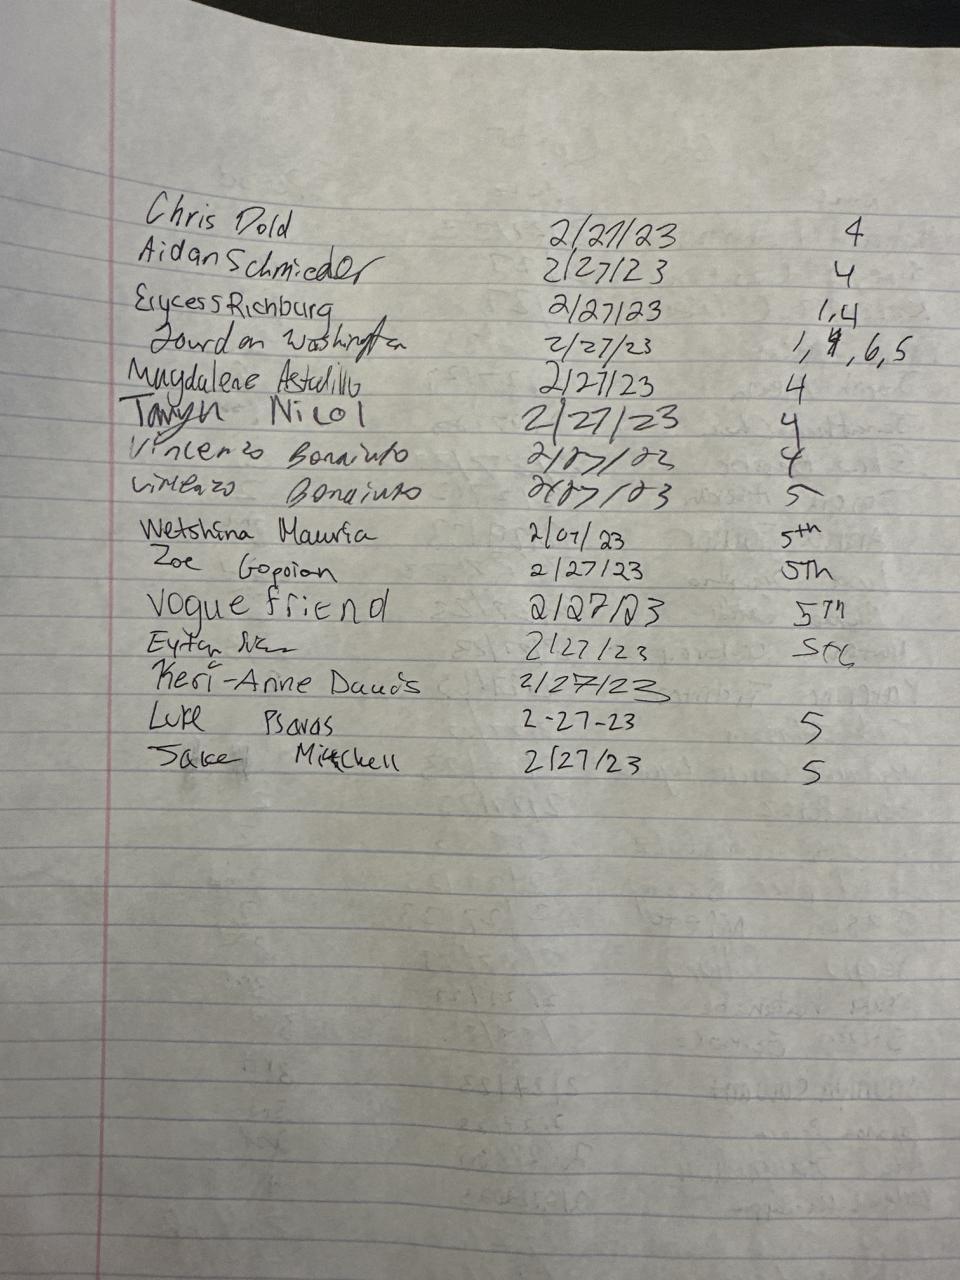 Chris Dold 2/27/23 4
Aidan Schmieder 2/27/23 4
Erycess Richburg 2/27/23 1,4
Jourdan Washington 2/27/23 1, 4, 6, 5
Magdalene Astudillo 2/27/23 4
Taryn Nicol 2/27/23 4
Vincenzo Bonaiuto 2/27/23 4
Vincenzo Bonaiuto 2/27/23 5
Wetshina Mauria 2/07/23 5th
Zoe Gopoian 2/27/23 5Th
Vogue friend 2/27/23 5Th
Eytan 2/27/23
Keri-Anne Davis 2/27/23
Luke Psaras 2-27-23 5
Jake Mitchell 2/27/23 5